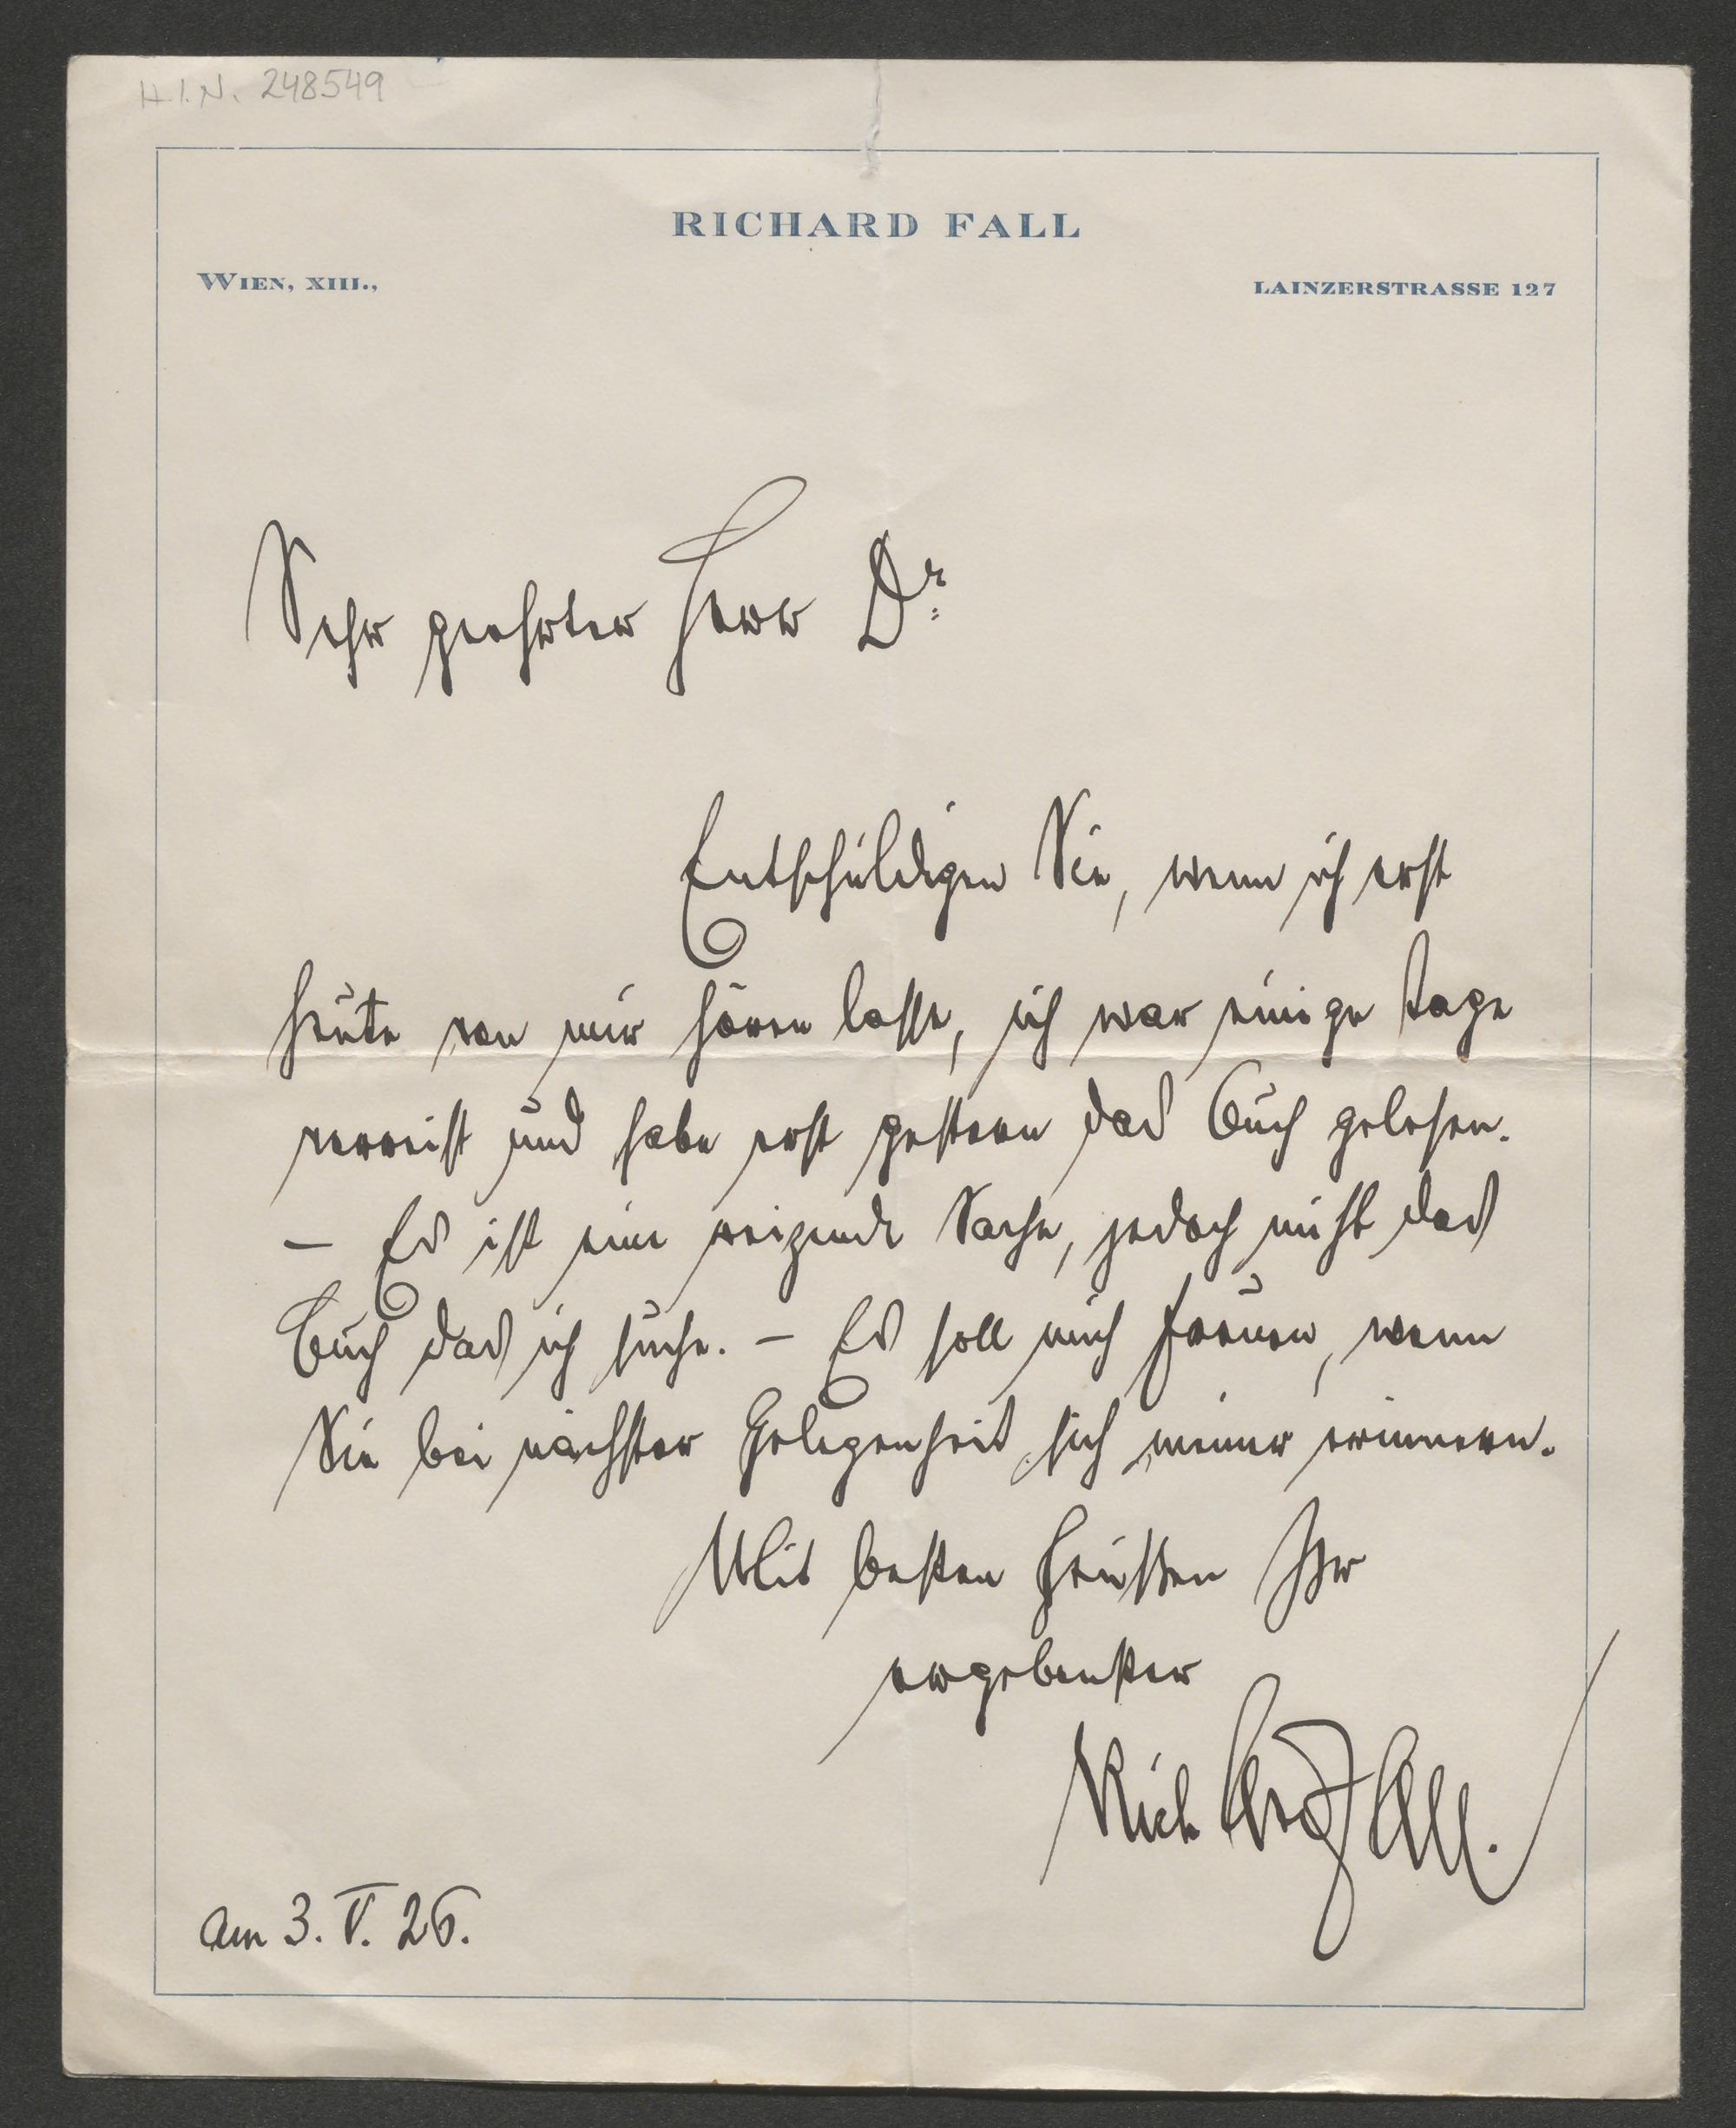 H.I.N. 248549
RICHARD FALL
WIEN, XIII.,
LAINZERSTRASSE 127
Sehr geehrter Herr Dr.
Entschuldigen Sie, wenn ich erst
heute von mir hören lasse, ich war einige Tage
verreist und habe erst gestern das Buch gelesen.
– Es ist eine reizende Sache, jedoch nicht das
Buch das ich suche. – Es soll mich freuen, wenn
Sie bei nächster Gelegenheit sich meiner erinnern.
Mit besten Grüßen Ihr
ergebenster
Richard Fall.
am 3. V. 26.